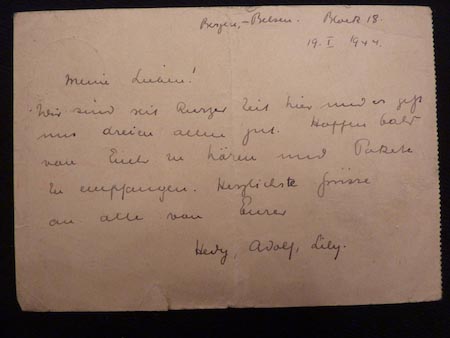 Bergen-Belsen. Block 18.
19. I 1944.
Meine Lieben!
Wir sind seit kurzer Zeit hier und es geht
uns dreien allen gut. Hoffen bald
von Euch zu hören und Pakete
zu empfangen. Herzlichste Grüsse
an alle von Eurer
Hedy, Adolf, Lily.